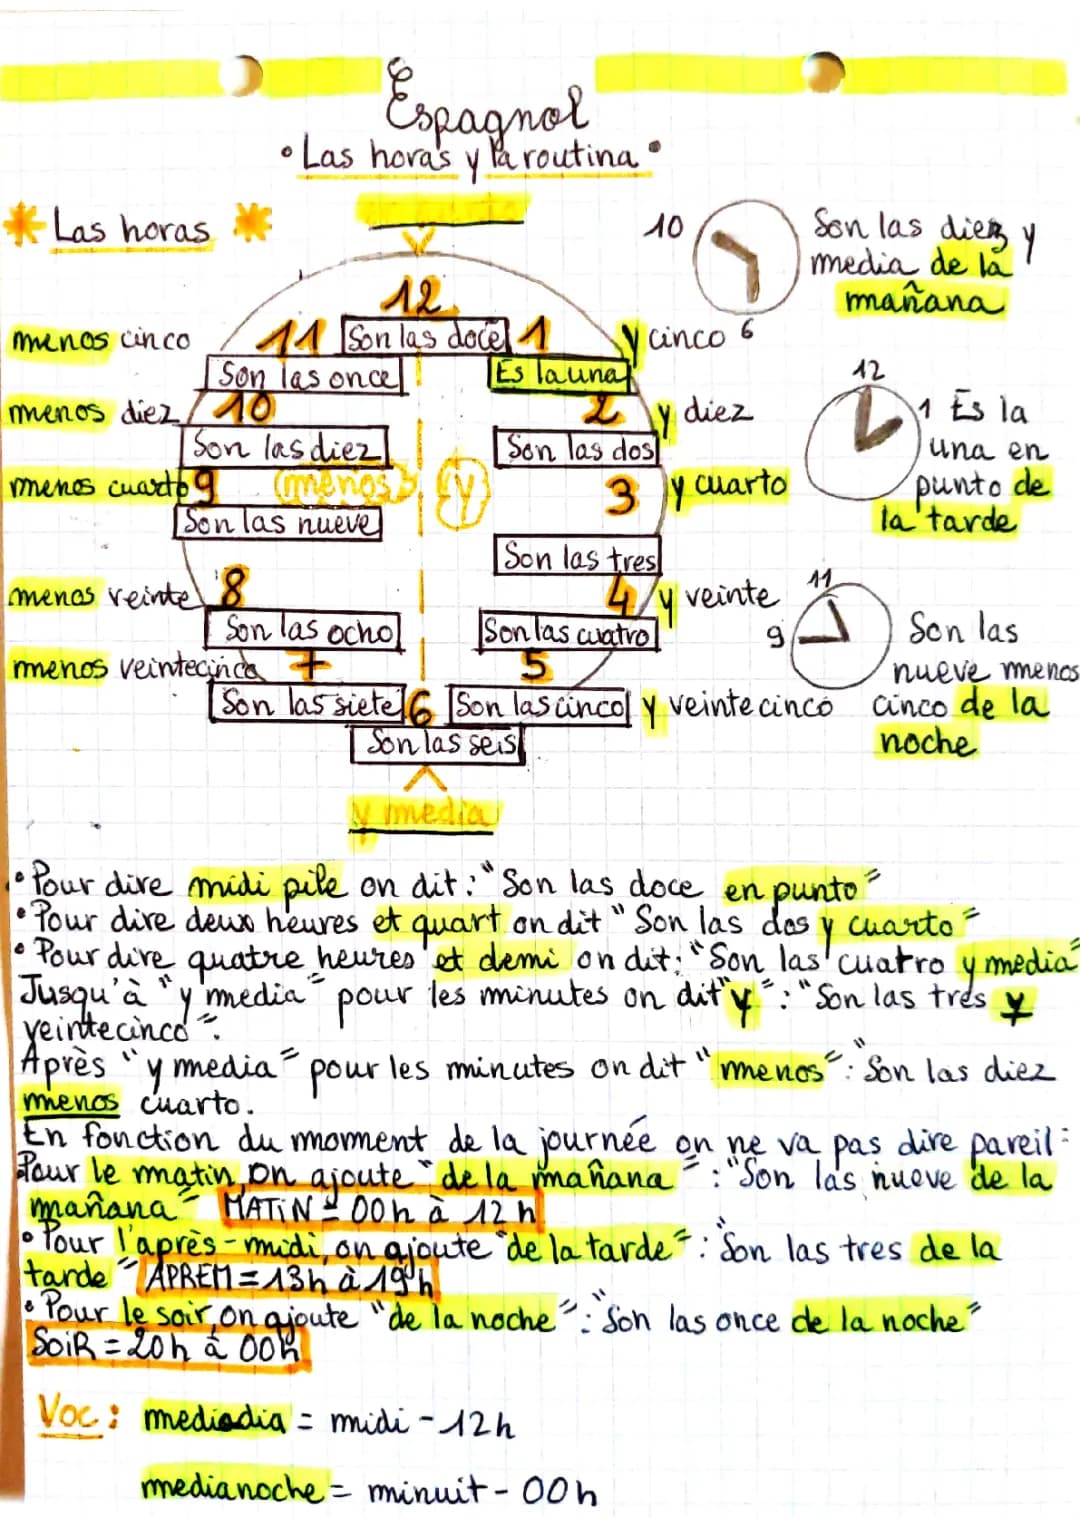 Espagnol
• Las horas y la routina •
* Las horas *
12
Son las doce
11
Son las once
10
Son las diez
9
Son las nueve
8
Son las ocho
7
Son las siete
6
Son las seis
1
Es la una
2
Son las dos
3
Son las tres
4
Son las cuatro
5
Son las cinco
menos cinco
menos diez
menos cuarto
menos veinte
menos veintecinco
(menos)
y
y cinco
y diez
y cuarto
y veinte
y veintecinco
y media
10
6
Son las diez y
media de la
mañana
12
1
Es la
una en
punto de
la tarde
11
9
Son las
nueve menos
cinco de la
noche
• Pour dire midi pile on dit : "Son las doce en punto"
• Pour dire deux heures et quart on dit "Son las dos y cuarto"
• Pour dire quatre heures et demi on dit : "Son las cuatro y media"
Jusqu'à "y media" pour les minutes on dit "y" : "Son las tres y
veintecinco".
Après "y media" pour les minutes on dit "menos" : "Son las diez
menos cuarto.
En fonction du moment de la journée on ne va pas dire pareil :
Pour le matin, on ajoute "de la mañana" : "Son las nueve de la
mañana" MATiN = 00h à 12h
• Pour l'après-midi, on ajoute "de la tarde" : "Son las tres de la
tarde" APREM = 13h à 19h
• Pour le soir, on ajoute "de la noche" : "Son las once de la noche"
SOiR = 20h à 00h
Voc : mediodia = midi - 12h
medianoche = minuit - 00h